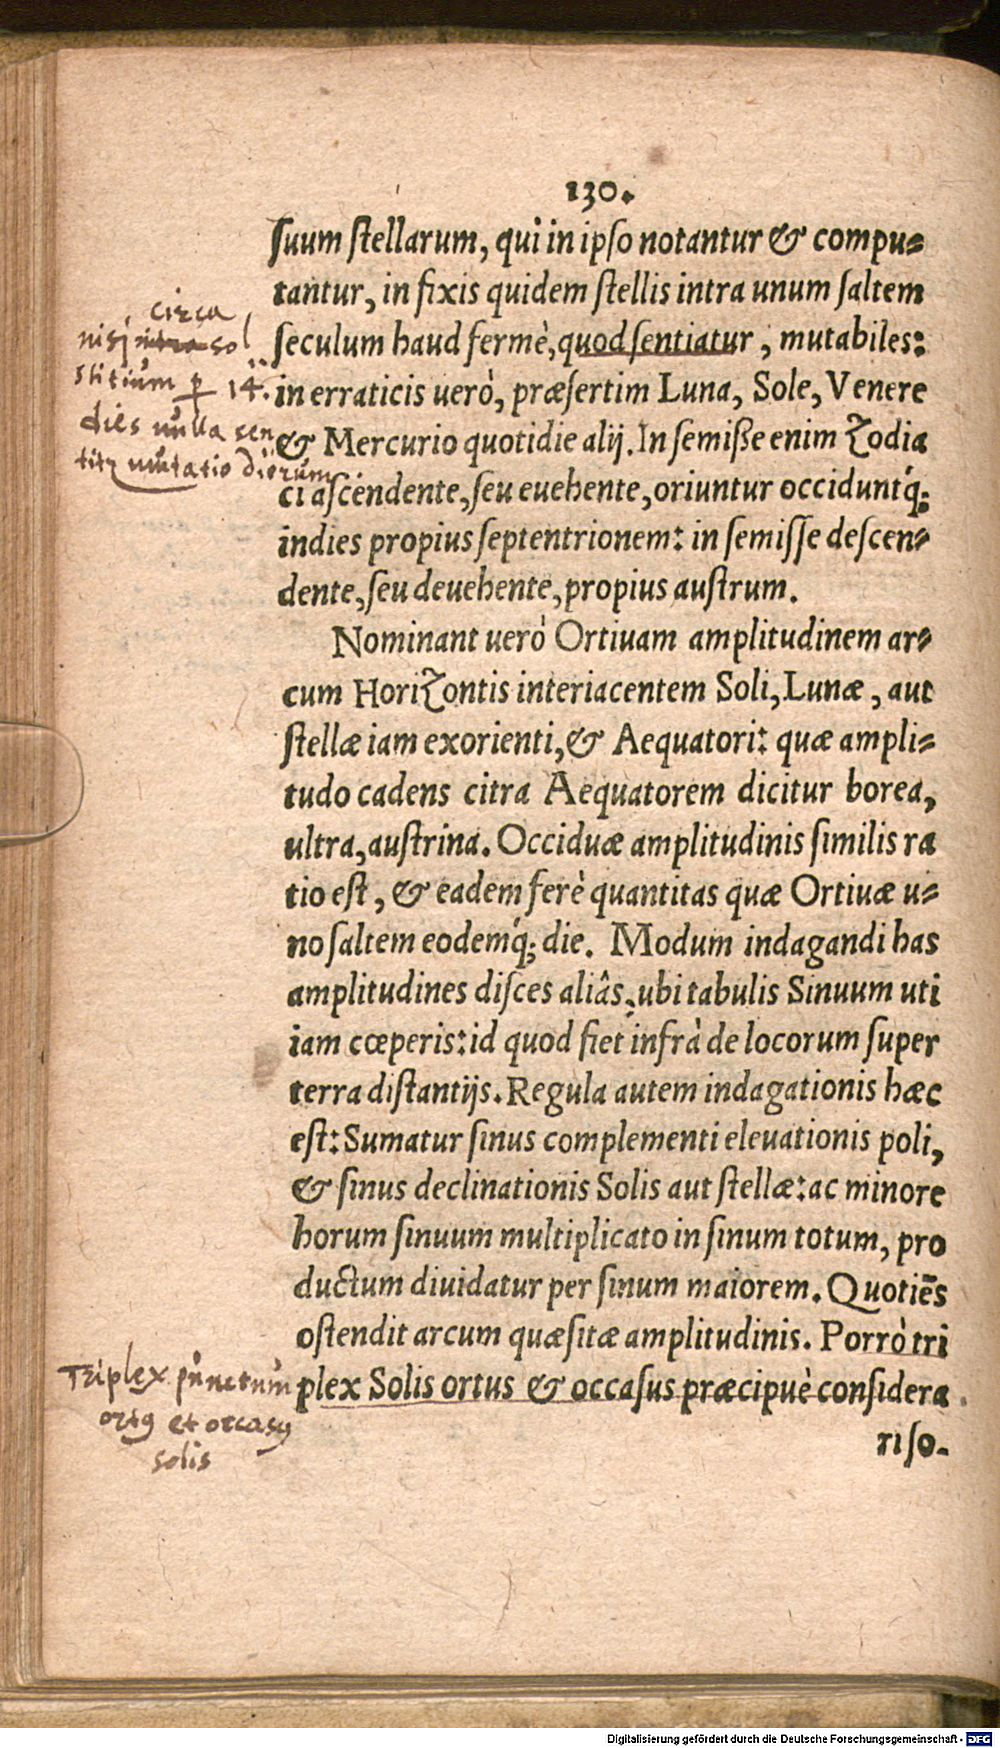 130.
ſuum ſtellarum, qui in ipſo notantur & compu⸗
tantur, in fixis quidem ſtellis intra unum ſaltem
ſeculum haud fermè, quod ſentiatur, mutabiles:
in erraticis uerò, præſertim Luna, Sole, Venere
& Mercurio quotidie alij. In ſemiße enim Zodia
ci aſcendente, ſeu euehente, oriuntur occiduntq́;
indies propius ſeptentrionem: in ſemiſſe deſcen⸗
dente, ſeu deuehente, propius auſtrum.
Nominant uerò Ortiuam amplitudinem ar⸗
cum Horizontis interiacentem Soli, Lunæ, aut
ſtellæ iam exorienti, & Aequatori: quæ ampli⸗
tudo cadens citra Aequatorem dicitur borea,
ultra, auſtrina. Occiduæ amplitudinis ſimilis ra
tio eſt, & eadem ferè quantitas quæ Ortiuæ u⸗
no ſaltem eodemq́; die. Modum indagandi has
amplitudines diſces aliâs, ubi tabulis Sinuum uti
iam cœperis: id quod fiet infrà de locorum ſuper
terra diſtantijs. Regula autem indagationis hæc
eſt: Sumatur ſinus complementi eleuationis poli,
& ſinus declinationis Solis aut ſtellæ: ac minore
horum ſinuum multiplicato in ſinum totum, pro
ductum diuidatur per ſinum maiorem. Quotiẽs
oſtendit arcum quæſitæ amplitudinis. Porrò tri
plex Solis ortus & occaſus præcipuè conſidera
ri ſo-
circa
nisi intra sol
stitium p 14.
dies nulla sen
titꝝ mutatio dierum
Triplex punctum
ortꝯ et occasꝯ
solis
Digitalisierung gefördert durch die Deutsche Forschungsgemeinschaft - DFG